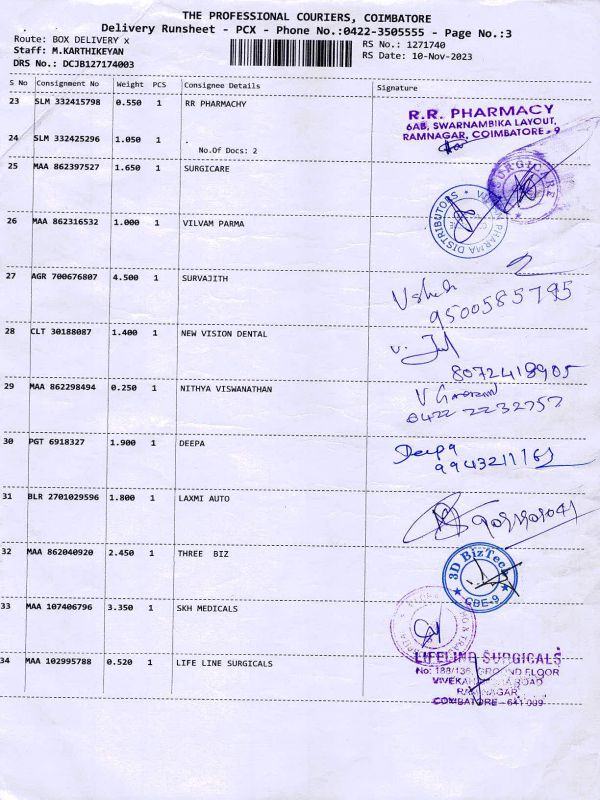 THE PROFESSIONAL COURIERS, COIMBATORE
Delivery Runsheet - PCX - Phone No.:0422-3505555 - Page No.:3
Route: BOX DELIVERY x
RS No.: 1271740
Staff: M.KARTHIKEYAN
RS Date: 10-Nov-2023
DRS No.: DCJB127174003
S No Consignment No Weight PCS Consignee Details Signature
23 SLM 332415798 0.550 1 RR PHARMACHY
R.R. PHARMACY
6AB, SWARNAMBIKA LAYOUT,
RAMNAGAR, COIMBATORE - 9
24 SLM 332425296 1.050 1 .
No.Of Docs: 2
25 MAA 862397527 1.650 1 SURGICARE
SURGICARE
26 MAA 862316532 1.000 1 VILVAM PARMA
PHARMA DISTRIBUTORS
27 AGR 700676807 4.500 1 SURVAJITH
9500585795
28 CLT 30188087 1.400 1 NEW VISION DENTAL
8072418905
29 MAA 862298494 0.250 1 NITHYA VISWANATHAN
0422 2232757
30 PGT 6918327 1.900 1 DEEPA
Deepa
31 BLR 2701029596 1.800 1 LAXMI AUTO
32 MAA 862040920 2.450 1 THREE BIZ
3D BizTech
CBE-9
33 MAA 107406796 3.350 1 SKH MEDICALS
34 MAA 102995788 0.520 1 LIFE LINE SURGICALS
LIFELINE SURGICALS
No: 188/136, GROUND FLOOR
ROAD
RAMNAGAR
COIMBATORE - 641 009